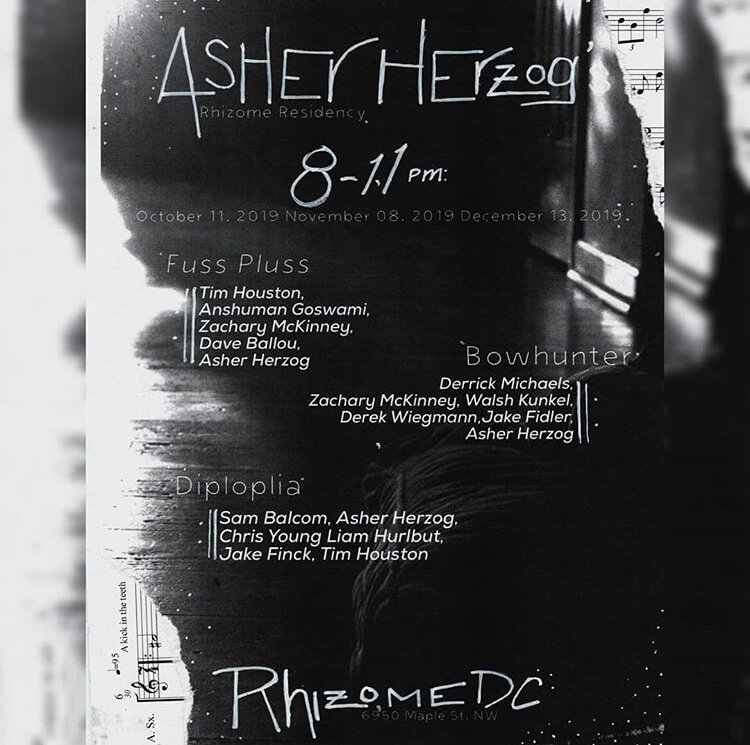 ASHER HERzog's
Rhizome Residency
8-11 pm:
October 11. 2019 November 08. 2019 December 13. 2019.
Fuss Pluss
Tim Houston,
Anshuman Goswami,
Zachary McKinney,
Dave Ballou,
Asher Herzog
Bowhunter
Derrick Michaels,
Zachary McKinney, Walsh Kunkel,
Derek Wiegmann,Jake Fidler,
Asher Herzog
Diploplia
Sam Balcom, Asher Herzog,
Chris Young Liam Hurlbut,
Jake Finck, Tim Houston
A kick in the teeth
♩=95
6
30
A. Sx.
3
RhizomeDC
6950 Maple St. NW